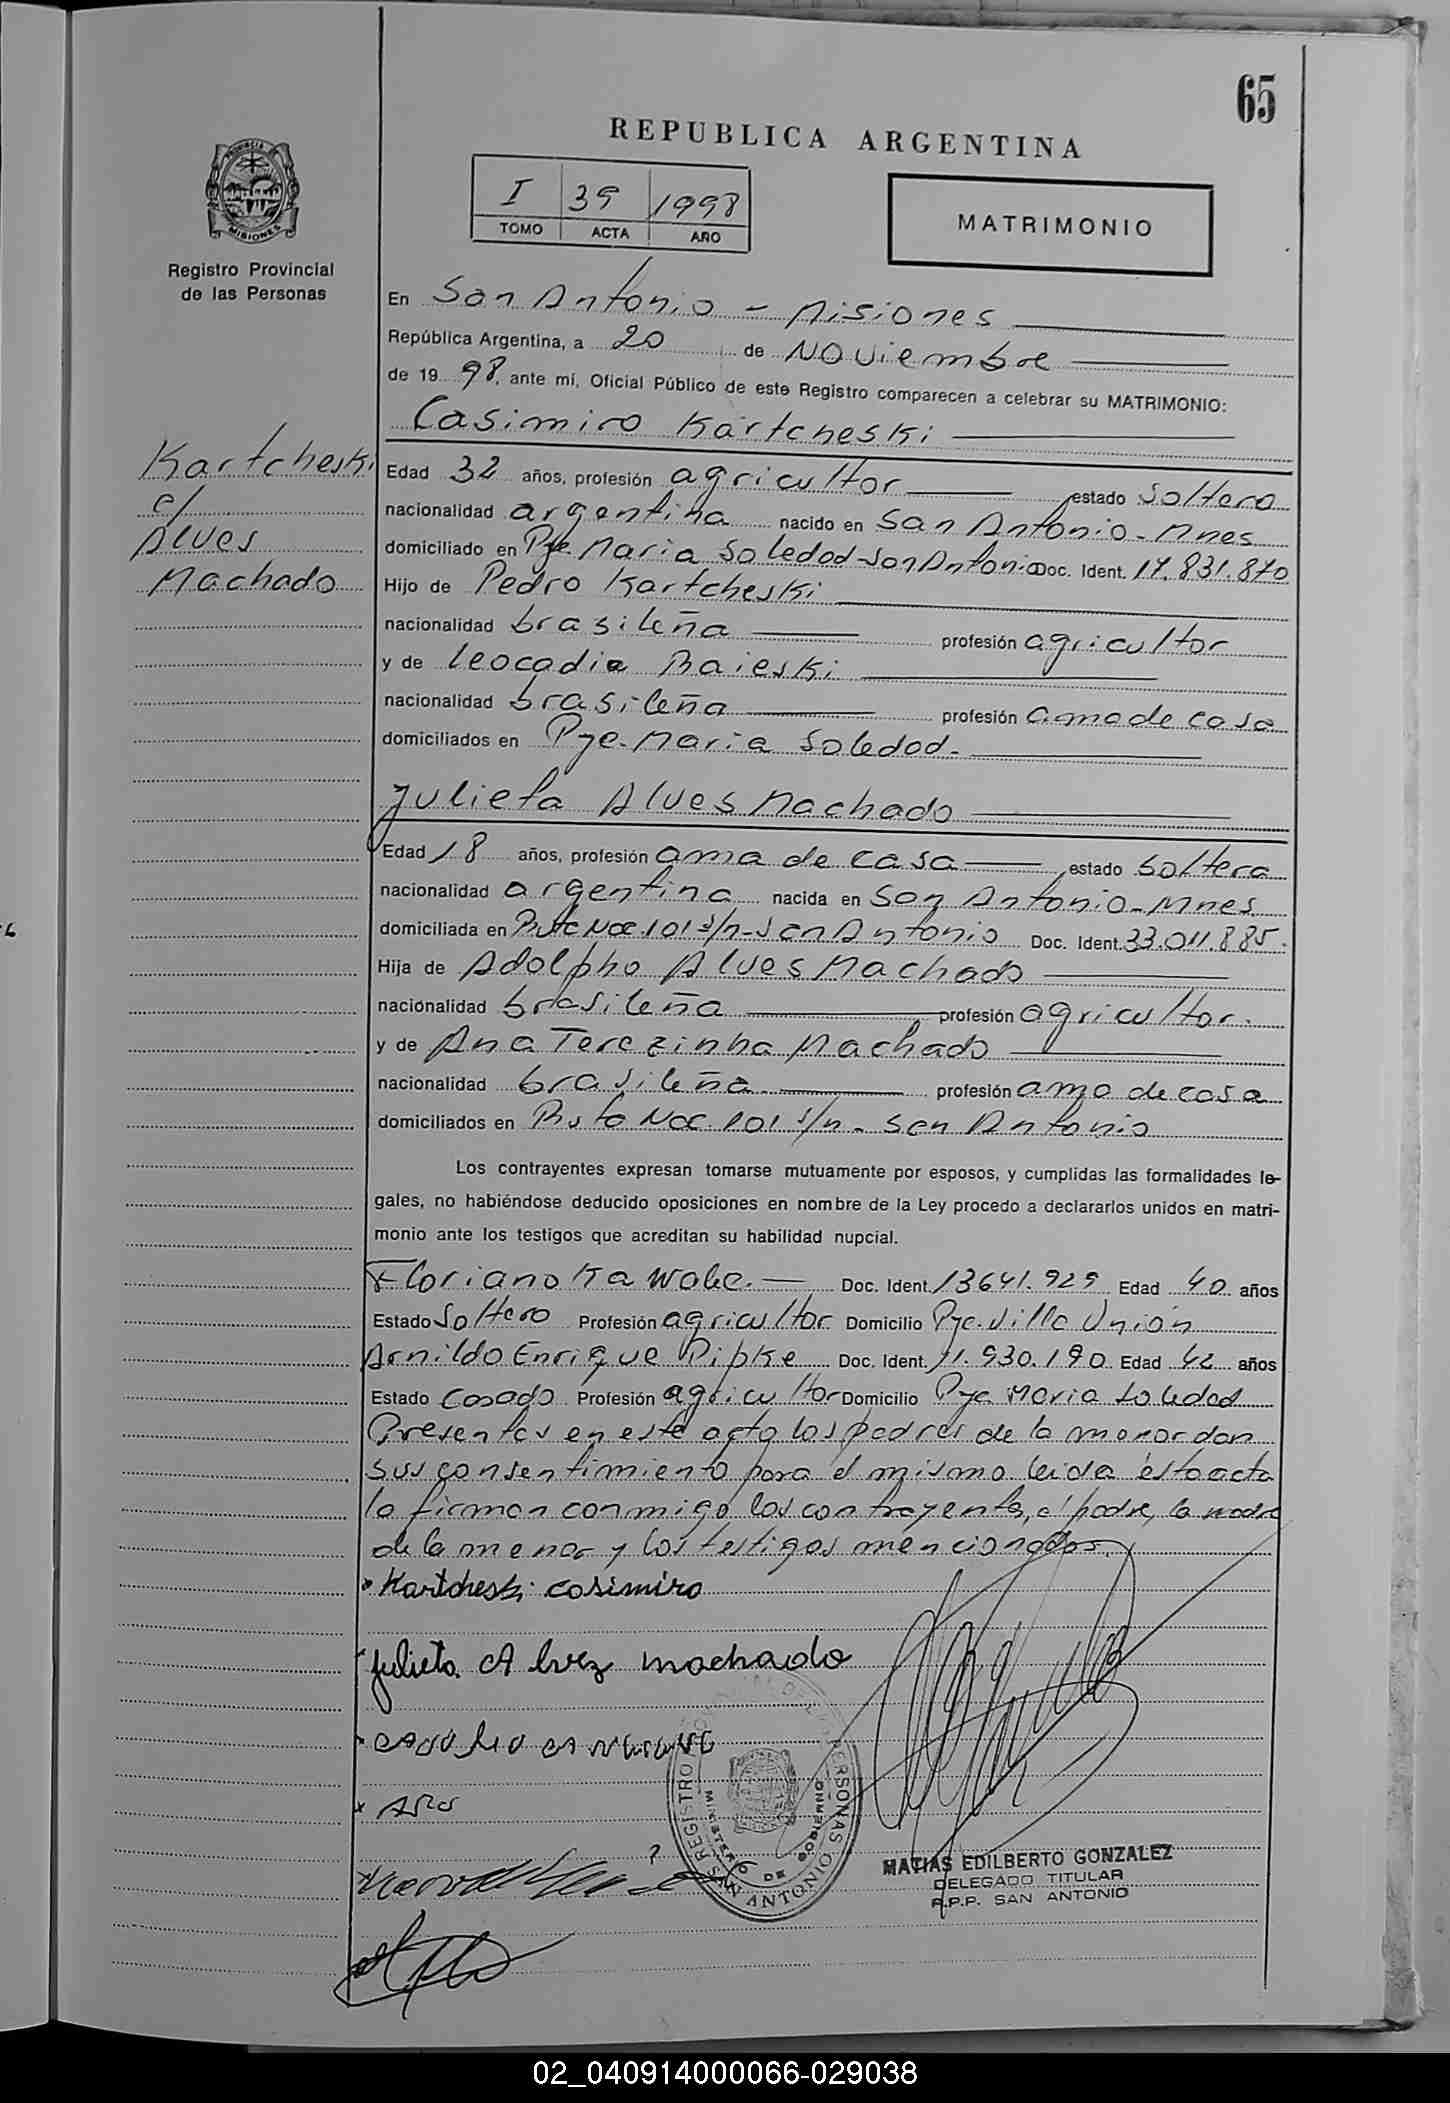 65
REPUBLICA ARGENTINA
I 39 1998
TOMO ACTA AÑO
MATRIMONIO
PROVINCIA DE
MISIONES
Registro Provincial
de las Personas
En San Antonio - Misiones
República Argentina, a 20 de Noviembre
de 1998, ante mí, Oficial Público de este Registro comparecen a celebrar su MATRIMONIO:
Casimiro Kartcheski
Kartcheski
c/
Alves
Machado
Edad 32 años, profesión agricultor estado Soltero
nacionalidad argentina nacido en San Antonio - Mnes
domiciliado en Pje. Maria Soledad - San Antonio Doc. Ident. 17.831.870
Hijo de Pedro Kartcheski
nacionalidad brasileña profesión agricultor
y de Leocadia Raieski
nacionalidad brasileña profesión ama de casa
domiciliados en Pje. Maria Soledad.
Julieta Alves Machado
Edad 18 años, profesión ama de casa estado Soltera
nacionalidad argentina nacida en San Antonio - Mnes
domiciliada en Ruta Nac. 101 s/n - San Antonio Doc. Ident. 33.011.885.
Hija de Adolpho Alves Machado
nacionalidad brasileña profesión agricultor.
y de Ana Terezinha Machado
nacionalidad brasileña profesión ama de casa
domiciliados en Ruta Nac. 101 s/n - San Antonio
Los contrayentes expresan tomarse mutuamente por esposos, y cumplidas las formalidades le-
gales, no habiéndose deducido oposiciones en nombre de la Ley procedo a declararlos unidos en matri-
monio ante los testigos que acreditan su habilidad nupcial.
Floriano Kawale. Doc. Ident. 13641.929 Edad 40 años
Estado Soltero Profesión agricultor Domicilio Pje. Villa Unión
Arnildo Enrique Pipke Doc. Ident. 11.930.190 Edad 42 años
Estado Casado Profesión agricultor Domicilio Pje Maria Soledad
Presentes en este acto los padres de la menor dan
sus consentimiento para el mismo leida esta acta
la firman conmigo los contrayentes, el padre, la madre
de la menor y los testigos mencionados.
Kartcheski casimiro
Julieta Alvez machado
Ana
REGISTRO PROVINCIAL DE LAS PERSONAS
MINISTERIO DE GOBIERNO
SAN ANTONIO
MATIAS EDILBERTO GONZALEZ
DELEGADO TITULAR
R.P.P. SAN ANTONIO
02_040914000066-029038